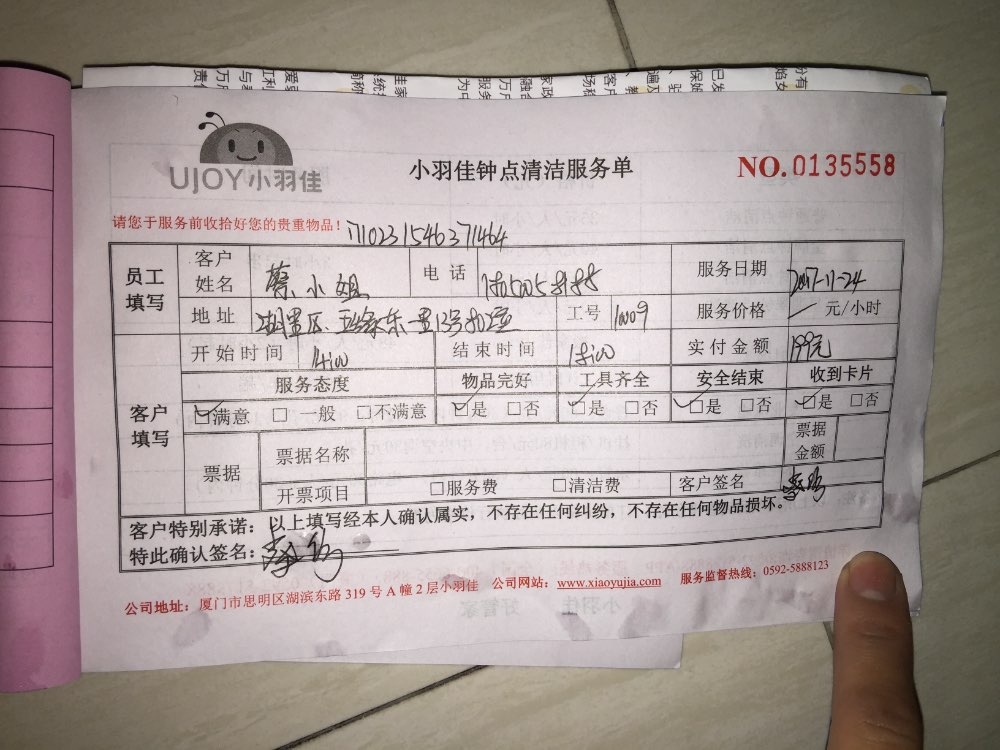 UJOY小羽佳
小羽佳钟点清洁服务单
NO.0135558
请您于服务前收拾好您的贵重物品！
71023154637 1464
员工填写 客户姓名 蔡小姐 电话 服务日期 2017-11-24
地址 湖里区 工号 11009 服务价格 元/小时
开始时间 14:00 结束时间 18:00 实付金额 199元
客户填写 服务态度 物品完好 工具齐全 安全结束 收到卡片
☑满意 □一般 □不满意 ☑是 □否 ☑是 □否 ☑是 □否 ☑是 □否
票据 票据名称 票据金额
开票项目 □服务费 □清洁费 客户签名
客户特别承诺：以上填写经本人确认属实，不存在任何纠纷，不存在任何物品损坏。
特此确认签名：
公司地址：厦门市思明区湖滨东路 319 号 A 幢 2 层小羽佳 公司网站：www.xiaoyujia.com 服务监督热线：0592-5888123